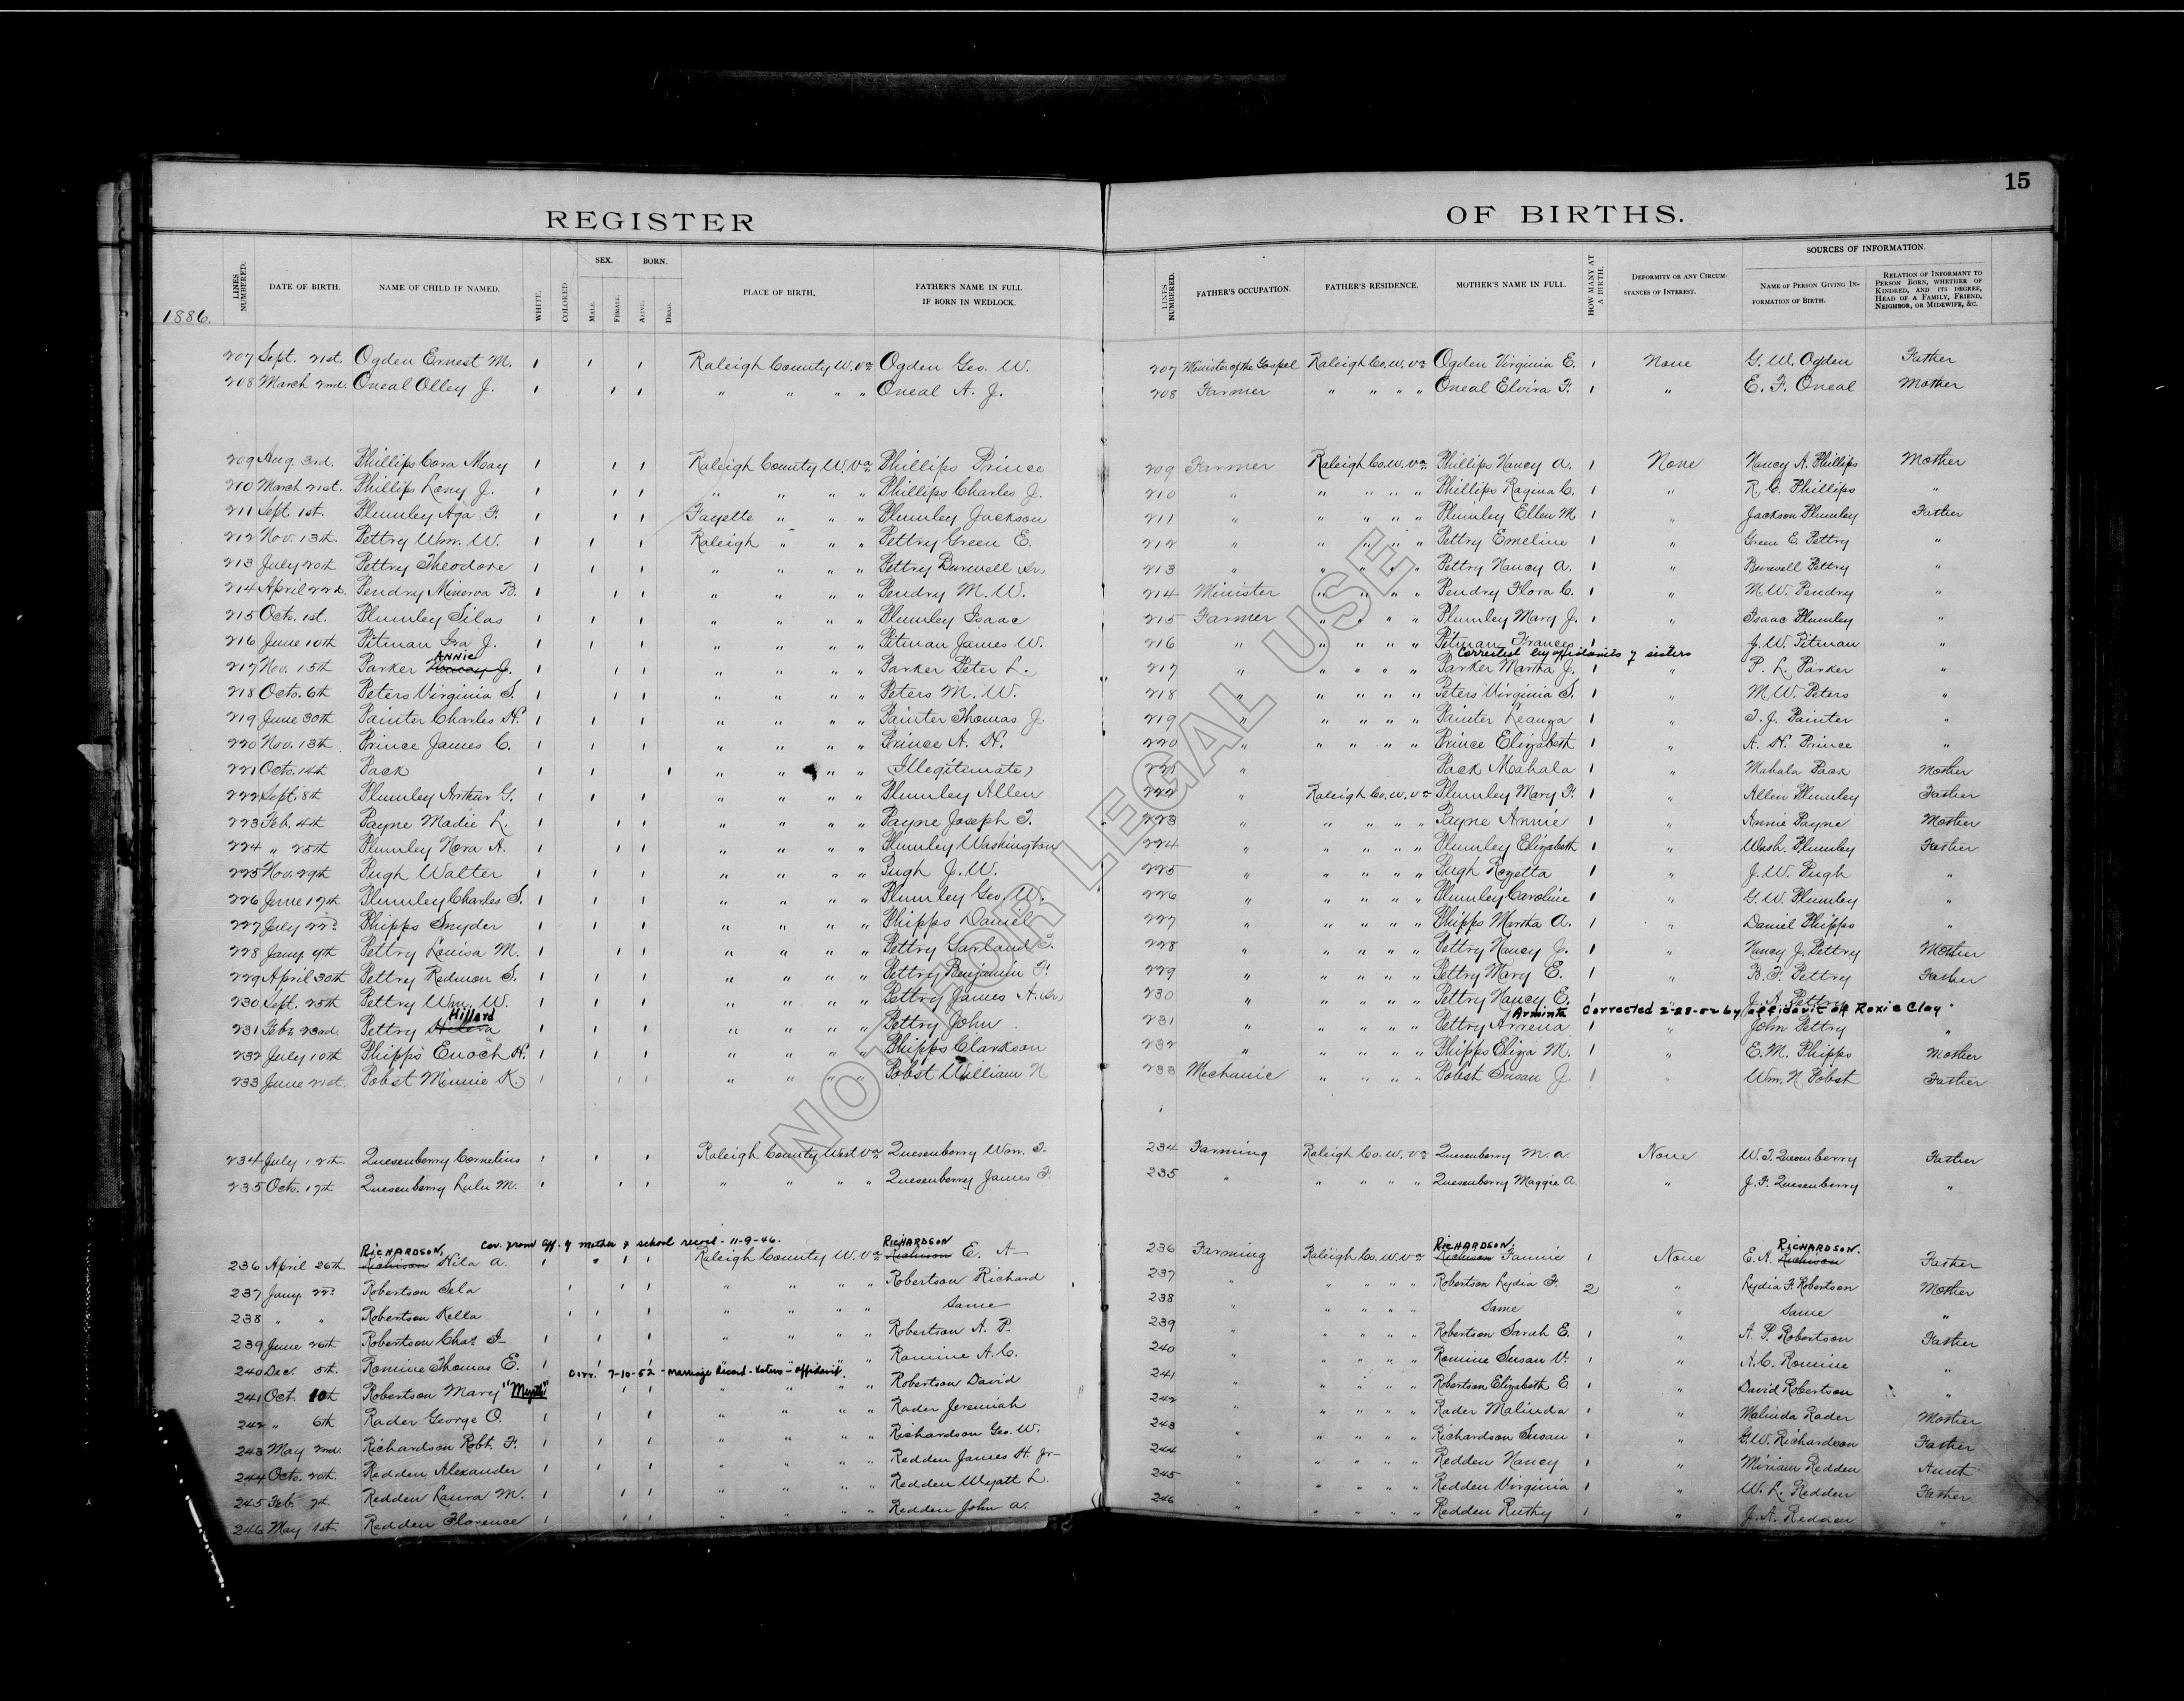 15
REGISTER OF BIRTHS.
1886.
LINES NUMBERED. DATE OF BIRTH. NAME OF CHILD IF NAMED. WHITE. COLORED. SEX. MALE. FEMALE. BORN. ALIVE. DEAD. PLACE OF BIRTH. FATHER'S NAME IN FULL IF BORN IN WEDLOCK. LINES NUMBERED. FATHER'S OCCUPATION. FATHER'S RESIDENCE. MOTHER'S NAME IN FULL. HOW MANY AT A BIRTH. DEFORMITY OR ANY CIRCUMSTANCES OF INTEREST. SOURCES OF INFORMATION. NAME OF PERSON GIVING INFORMATION OF BIRTH. RELATION OF INFORMANT TO PERSON BORN, WHETHER OF KINDRED, AND ITS DEGREE, HEAD OF A FAMILY, FRIEND, NEIGHBOR, OR MIDEWIFE, &C.
207 Sept. 21st. Ogden Ernest M. 1 1 1 Raleigh County W. Va Ogden Geo. W. 207 Minister of the Gospel Raleigh Co. W. Va Ogden Virginia E. 1 None G. W. Ogden Father
208 March 2nd. Oneal Olley J. 1 1 1 " " " " Oneal A. J. 208 Farmer " " " " Oneal Elvira F. 1 " E. F. Oneal Mother
209 Aug. 3rd. Phillips Cora May 1 1 1 Raleigh County W. Va Phillips Prince 209 Farmer Raleigh Co. W. Va Phillips Nancy A. 1 None Nancy A. Phillips Mother
210 March 21st. Phillips Leny J. 1 1 1 " " " " Phillips Charles J. 210 " " " " " Phillips Ragina C. 1 " R. C. Phillips "
211 Sept. 1st. Plumley Aza F. 1 1 1 Fayette " " " Plumley Jackson 211 " " " " " Plumley Ellen M 1 " Jackson Plumley Father
212 Nov. 13th. Pettry Wm. W. 1 1 1 Raleigh " " " Pettry Green E. 212 " " " " " Pettry Emeline 1 " Green E. Pettry "
213 July 20th Pettry Theodore 1 1 1 " " " " Pettry Burwell Sr. 213 " " " " " Pettry Nancy A. 1 " Burwell Pettry "
214 April 22d. Pendry Minerva B. 1 1 1 " " " " Pendry M. W. 214 Minister " " " " Pendry Flora C. 1 " M. W. Pendry "
215 Octo. 1st. Plumley Silas 1 1 1 " " " " Plumley Isaac 215 Farmer " " " " Plumley Mary J. 1 " Isaac Plumley "
216 June 10th Pitman Ira J. 1 1 1 " " " " Pitman James W. 216 " " " " " Pitman Frances 1 " J. W. Pitman "
ANNIE Corrected by affidavits of sisters
217 Nov. 15th Parker Nancy J. 1 1 1 " " " " Parker Peter L. 217 " " " " " Parker Martha J. 1 " P. L. Parker "
218 Octo. 6th Peters Virginia S. 1 1 1 " " " " Peters M. W. 218 " " " " " Peters Virginia S. 1 " M. W. Peters "
219 June 30th Painter Charles H. 1 1 1 " " " " Painter Thomas J. 219 " " " " " Painter Leanza 1 " T. J. Painter "
220 Nov. 13th Prince James C. 1 1 1 " " " " Prince A. H. 220 " " " " " Prince Elizabeth 1 " A. H. Prince "
221 Octo. 14th Pack 1 1 1 " " " " (Illegitimate) 221 " Pack Mahala 1 " Mahala Pack Mother
222 Sept. 8th Plumley Arthur G. 1 1 1 " " " " Plumley Allen 222 " Raleigh Co. W. Va Plumley Mary F. 1 " Allen Plumley Father
223 Feb. 4th Payne Madie L. 1 1 1 " " " " Payne Joseph T. 223 " " " " " Payne Annie 1 " Annie Payne Mother
224 " 25th Plumley Nora A. 1 1 1 " " " " Plumley Washington 224 " " " " " Plumley Elizabeth 1 " Wash. Plumley Father
225 Nov. 29th Pugh Walter 1 1 1 " " " " Pugh J. W. 225 " " " " " Pugh Rozetta 1 " J. W. Pugh "
226 June 17th Plumley Charles S. 1 1 1 " " " " Plumley Geo. W. 226 " " " " " Plumley Caroline 1 " G. W. Plumley "
227 July 22d Phipps Snyder 1 1 1 " " " " Phipps Daniel 227 " " " " " Phipps Martha A. 1 " Daniel Phipps "
228 Jany. 9th Pettry Louisa M. 1 1 1 " " " " Pettry Garland T. 228 " " " " " Pettry Nancy J. 1 " Nancy J. Pettry Mother
229 April 30th Pettry Redmon S. 1 1 1 " " " " Pettry Benjamin F. 229 " " " " " Pettry Mary E. 1 " B. F. Pettry Father
230 Sept. 25th Pettry Wm. W. 1 1 1 " " " " Pettry James A. Sr 230 " " " " " Pettry Nancy E. 1 " J. A. Pettry "
Hillard Arminta Corrected 2-28-52 by affidavit of Roxie Clay
231 Feb. 23rd. Pettry 1 1 1 " " " " Pettry John 231 " " " " " Pettry Arrena 1 " John Pettry "
232 July 10th Phipps Enoch H. 1 1 1 " " " " Phipps Clarkson 232 " " " " " Phipps Eliza M. 1 " E. M. Phipps Mother
233 June 21st. Pobst Minnie K. 1 1 1 " " " " Pobst William N 233 Mechanic " " " " Pobst Susan J 1 " Wm. N. Pobst Father
234 July 12th. Quesenberry Cornelius 1 1 1 Raleigh County West Va Quesenberry Wm. T. 234 Farming Raleigh Co. W. Va Quesenberry M. A. None W. T. Quesenberry Father
235 Octo. 17th Quesenberry Lulu M. 1 1 1 " " " " Quesenberry James F. 235 " " " " " Quesenberry Maggie A. " J. F. Quesenberry "
RICHARDSON, Cor. from Aff. of Mother & school record - 11-9-46. RICHARDSON RICHARDSON, RICHARDSON.
236 April 26th. Richison Nila A. 1 1 1 Raleigh County W. Va Richison E. A 236 Farming Raleigh Co. W. Va Richison Fannie 1 None E. A. Richison Father
237 Jany. 22d Robertson Sela 1 1 1 " " " " Robertson Richard 237 " " " " " Robertson Lydia F. 2 " Lydia F. Robertson Mother
238 " " Robertson Kella 1 1 1 " " " " Same 238 " " " " " Same " Same "
239 June 26th Robertson Chas. I. 1 1 1 " " " " Robertson A. P. 239 " " " " " Robertson Sarah E. 1 " A. P. Robertson Father
240 Dec. 5th. Romine Thomas E. 1 1 1 " " " " Romine A. C. 240 " " " " " Romine Susan V. 1 " A. C. Romine "
Corr. 7-10-52 - Marriage Record - Voters - Affidavit.
241 Oct. 10th Robertson Mary "Myrtle" 1 1 " " " " Robertson David 241 " " " " " Robertson Elizabeth E. 1 " David Robertson "
242 " 6th Rader George O. 1 1 1 " " " " Rader Jeremiah 242 " " " " " Rader Malinda 1 " Malinda Rader Mother
243 May 2nd. Richardson Robt. F. 1 1 1 " " " " Richardson Geo. W. 243 " " " " " Richardson Susan 1 " G. W. Richardson Father
244 Octo. 20th. Redden Alexander 1 1 1 " " " " Redden James H. Jr 244 " " " " " Redden Nancy 1 " Miriam Redden Aunt
245 Feb. 7th. Redden Laura M. 1 1 1 " " " " Redden Wyatt L. 245 " " " " " Redden Virginia 1 " W. L. Redden Father
246 May 1st. Redden Florence 1 1 1 " " " " Redden John A. 246 " " " " " Redden Ruthy 1 " J. A. Redden "
NOT FOR LEGAL USE